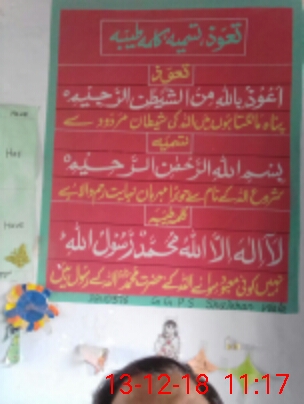 تعوذ، تسمیہ، کلمہ طیبہ
تعوذ
اَعُوْذُ بِاللّٰهِ مِنَ الشَّيْطٰنِ الرَّجِيْمِ
پناہ مانگتا ہوں میں اللہ کی شیطان مردود سے
تسمیہ
بِسْمِ اللّٰهِ الرَّحْمٰنِ الرَّحِيْمِ
شروع اللہ کے نام سے جو بڑا مہربان نہایت رحم والا ہے
کلمہ طیبہ
لَآ اِلٰهَ اِلَّا اللّٰهُ مُحَمَّدٌ رَّسُوْلُ اللّٰهِ
نہیں کوئی معبود سوائے اللہ کے حضرت محمد ﷺ اللہ کے رسول ہیں
GGPS
Have
Has
Have
13-12-18 11:17